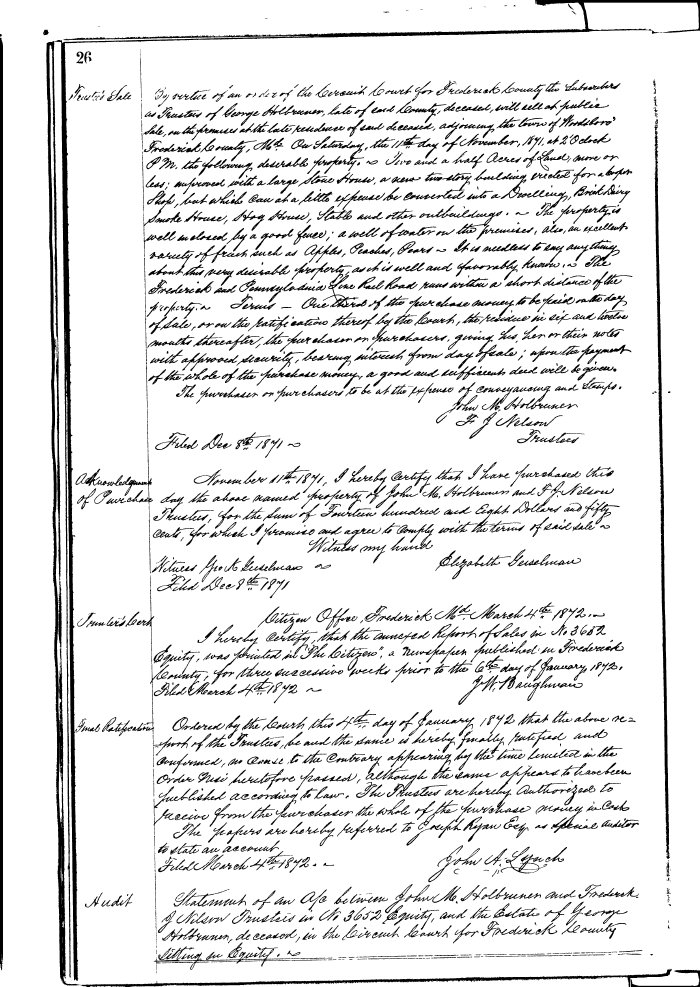 26
Trustee's Sale
By vertue of an order of the Circuit Court for Frederick County the Subscribers
as Trustees of George Holbruner, late of said County, deceased, will sell at public
sale, on the premises at the late residence of said deceased, adjoining the town of Woodsboro'
Frederick County, Md. On Saturday, the 11th day of November, 1871, at 2 O'clock
P.M. the following desirable property. ~ Five and a half Acres of Land, more or
less; improved with a large Stone House, a new two story building erected for a
Shop, but which can at a little expense be converted into a Dwelling, Brick Dairy
Smoke House, Hog House, Stable and other outbuildings. ~ The property is
well inclosed by a good fence; a well of water on the premises, also, an excellent
variety of fruit such as Apples, Peaches, Pears ~ It is needless to say anything
about this very desirable property, as it is well and favorably known. ~ The
Frederick and Pennsylvania Line Rail Road runs within a short distance of the
property. ~ Terms — One third of the purchase money to be paid on the day
of sale, or on the ratification thereof by the Court, the residue in six and twelve
months thereafter, the purchaser or purchasers, giving his, her or their notes
with approved security, bearing interest from day of sale; upon the payment
of the whole of the purchase money, a good and sufficient deed will be given.
The purchaser or purchasers to be at the expense of conveyancing and Stamps.
John M. Holbruner
F. J Nelson
Trustees
Filed Dec 8th 1871 ~
Acknowledgment
of Purchase
November 11th 1871, I hereby certify that I have purchased this
day the above named property of John M. Holbruner and F. J Nelson
Trustees, for the sum of Fourteen hundred and Eight Dollars and fifty
cents, for which I promise and agree to comply with the terms of said sale ~
Witness my hand
Witness Geo A Geiselman ~ Elizabeth Geiselman
Filed Dec 8th 1871
Printer's Cert
Citizen Office, Frederick Md. March 4th 1872. ~
I hereby certify, that the annexed Report of Sales in No 3652
Equity, was printed in "The Citizen", a newspaper published in Frederick
County, for three successive weeks prior to the 6th day of January, 1872.
Filed March 4th 1872 ~ J. W. Baughman
Final Ratification
Ordered by the Court, this 4th day of January 1872 that the above re=
port of the Trustees, be and the same is hereby finally ratified and
confirmed, no cause to the contrary appearing by the time limited in the
Order Nisi heretofore passed, although the same appears to have been
published according to law. The Trustees are hereby Authorized to
receive from the purchaser the whole of the purchase money in Cash
The papers are hereby referred to Joseph Ryan Esq. as special auditor
to state an account
Filed March 4th 1872. ~ John A. Lynch
Audit
Statement of an A/c between John M. Holbruner and Frederick
J Nelson Trustees in No 3652 Equity, and the Estate of George
Holbruner, deceased, in the Circuit Court for Frederick County
sitting in Equity. ~